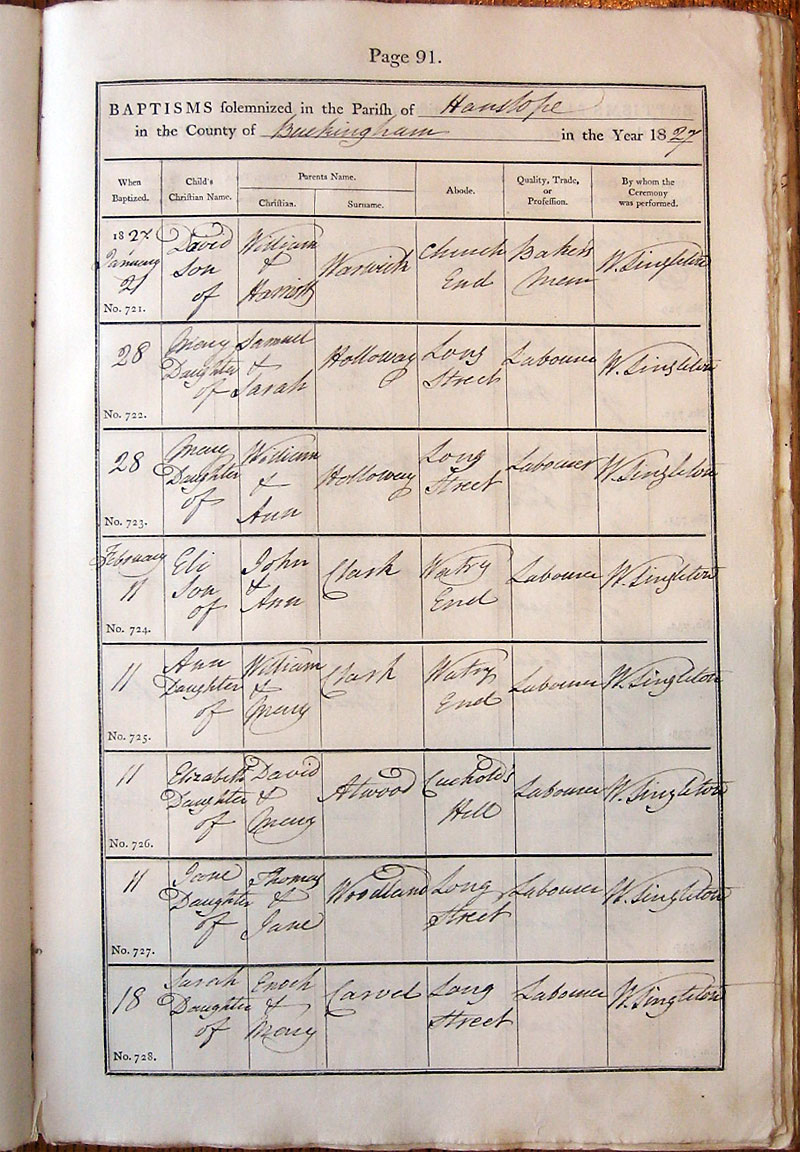 Page 91.
BAPTISMS solemnized in the Parish of Hanslope
in the County of Buckingham in the Year 1827
When Baptized.
Child's Christian Name.
Parents Name.
Christian.
Surname.
Abode.
Quality, Trade, or Profession.
By whom the Ceremony was performed.
1827 January 21
No. 721.
David Son of
William & Harriott
Warwick
Church End
Bakers Man
W. Singleton
28
No. 722.
Mary Daughter of
Samuel & Sarah
Holloway
Long Street
Labourer
W. Singleton
28
No. 723.
Mary Daughter of
William & Ann
Holloway
Long Street
Labourer
W. Singleton
February 11
No. 724.
Eli Son of
John & Ann
Clark
Watry End
Labourer
W. Singleton
11
No. 725.
Ann Daughter of
William & Mary
Clark
Watry End
Labourer
W. Singleton
11
No. 726.
Elizabeth Daughter of
David & Mary
Atwood
Cuckold's Hill
Labourer
W. Singleton
11
No. 727.
Jane Daughter of
Thomas & Jane
Woodland
Long Street
Labourer
W. Singleton
18
No. 728.
Sarah Daughter of
Enoch & Mary
Carvel
Long Street
Labourer
W. Singleton